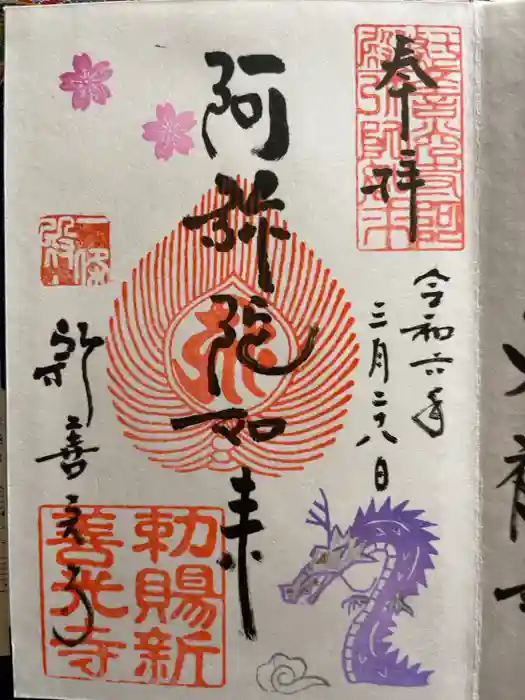 奉拝
令和六年
三月二十八日
阿弥陀如来
新善光寺
勅賜新
善光寺